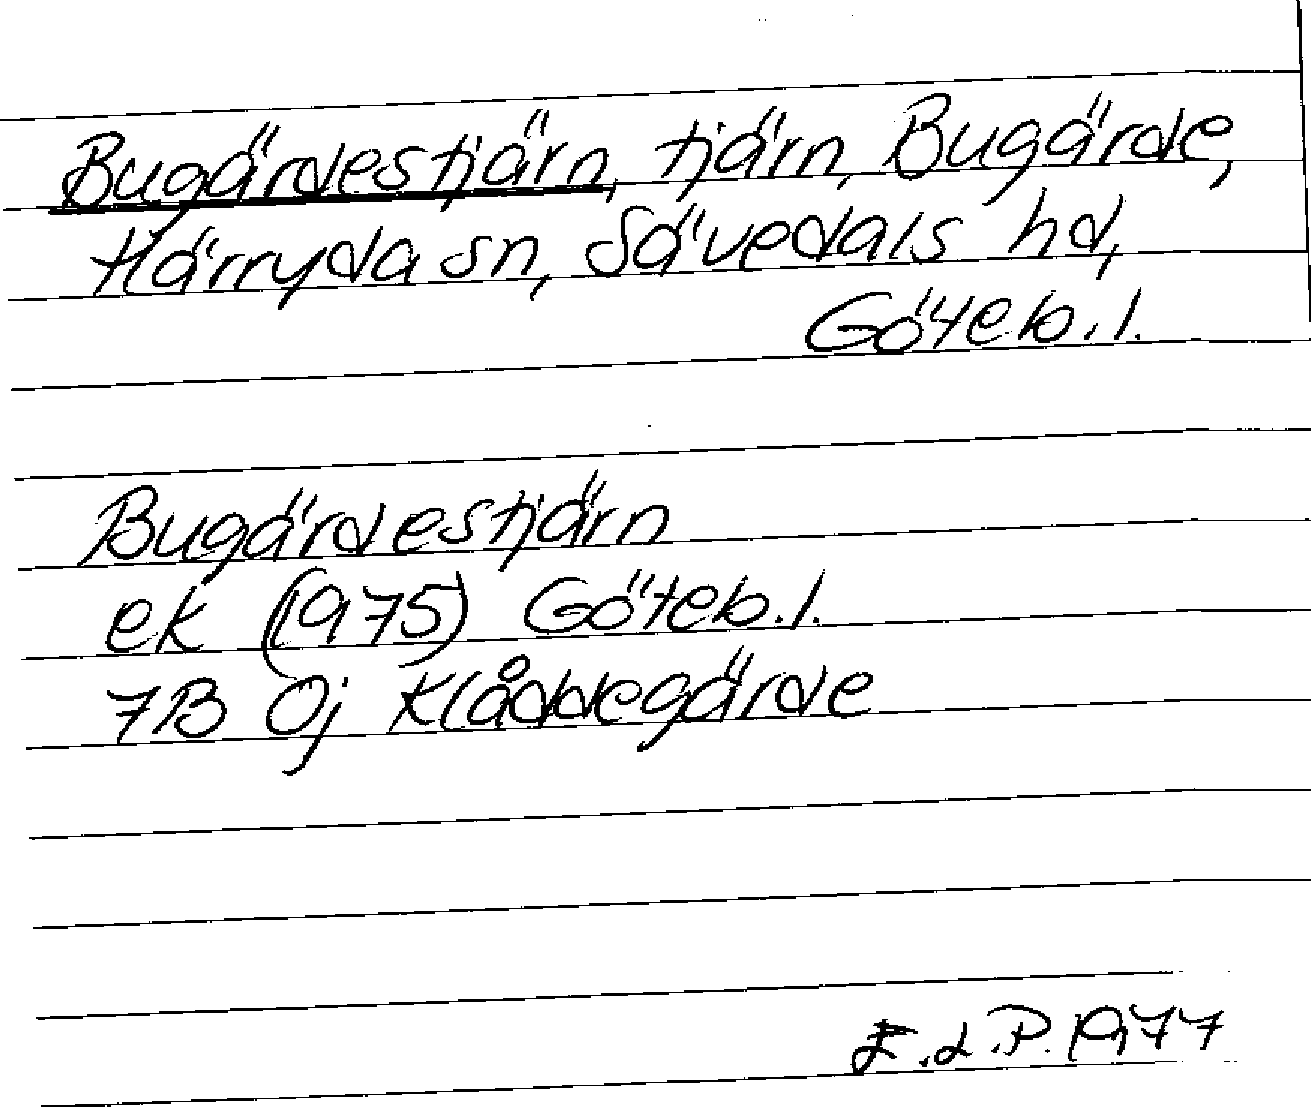 Bugärdestjärn, tjärn, Bugärde,
Härryda sn, Sävedals hd,
Göteb.l.
Bugärdestjärn
ek (1975) Göteb.l.
7B 0j Klåddegärde
E.d.P. 1977